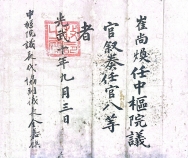 崔尚煥任中樞院議
官叙奏任官八等
者
光武十年九月三日
中樞院議長代辦